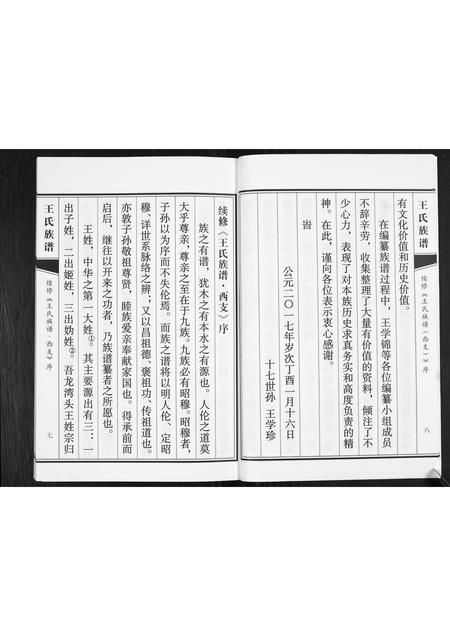 王氏族谱
续修《王氏族谱(西支)》序
六
有文化价值和历史价值。
在编纂族谱过程中，王学锦等各位编纂小组成员
不辞辛劳，收集整理了大量有价值的资料，倾注了不
少心力，表现了对本族历史求真务实和高度负责的精
神。在此，谨向各位表示衷心感谢。
旹
公元二〇一七年岁次丁酉一月十六日
十七世孙 王学珍
续修《王氏族谱·西支》序
族之有谱，犹木之有本水之有源也。人伦之道莫
大乎尊亲，尊亲之至在于九族。九族必有昭穆。昭穆者，
子孙以为序而不失伦焉。而族之谱将以明人伦、定昭
穆、详世系脉络之辨；又以昌祖德、褒祖功、传祖道也。
亦敦子孙敬祖尊贤，睦族爱亲奉献家国也。得承前而
启后，继往以开来之功者，乃族谱纂者之所愿也。
王姓，中华之第一大姓①。其主要源出有三：一
出子姓，二出姬姓，三出妫姓②。吾龙湾头王姓宗归
王氏族谱
续修《王氏族谱(西支)》序
七